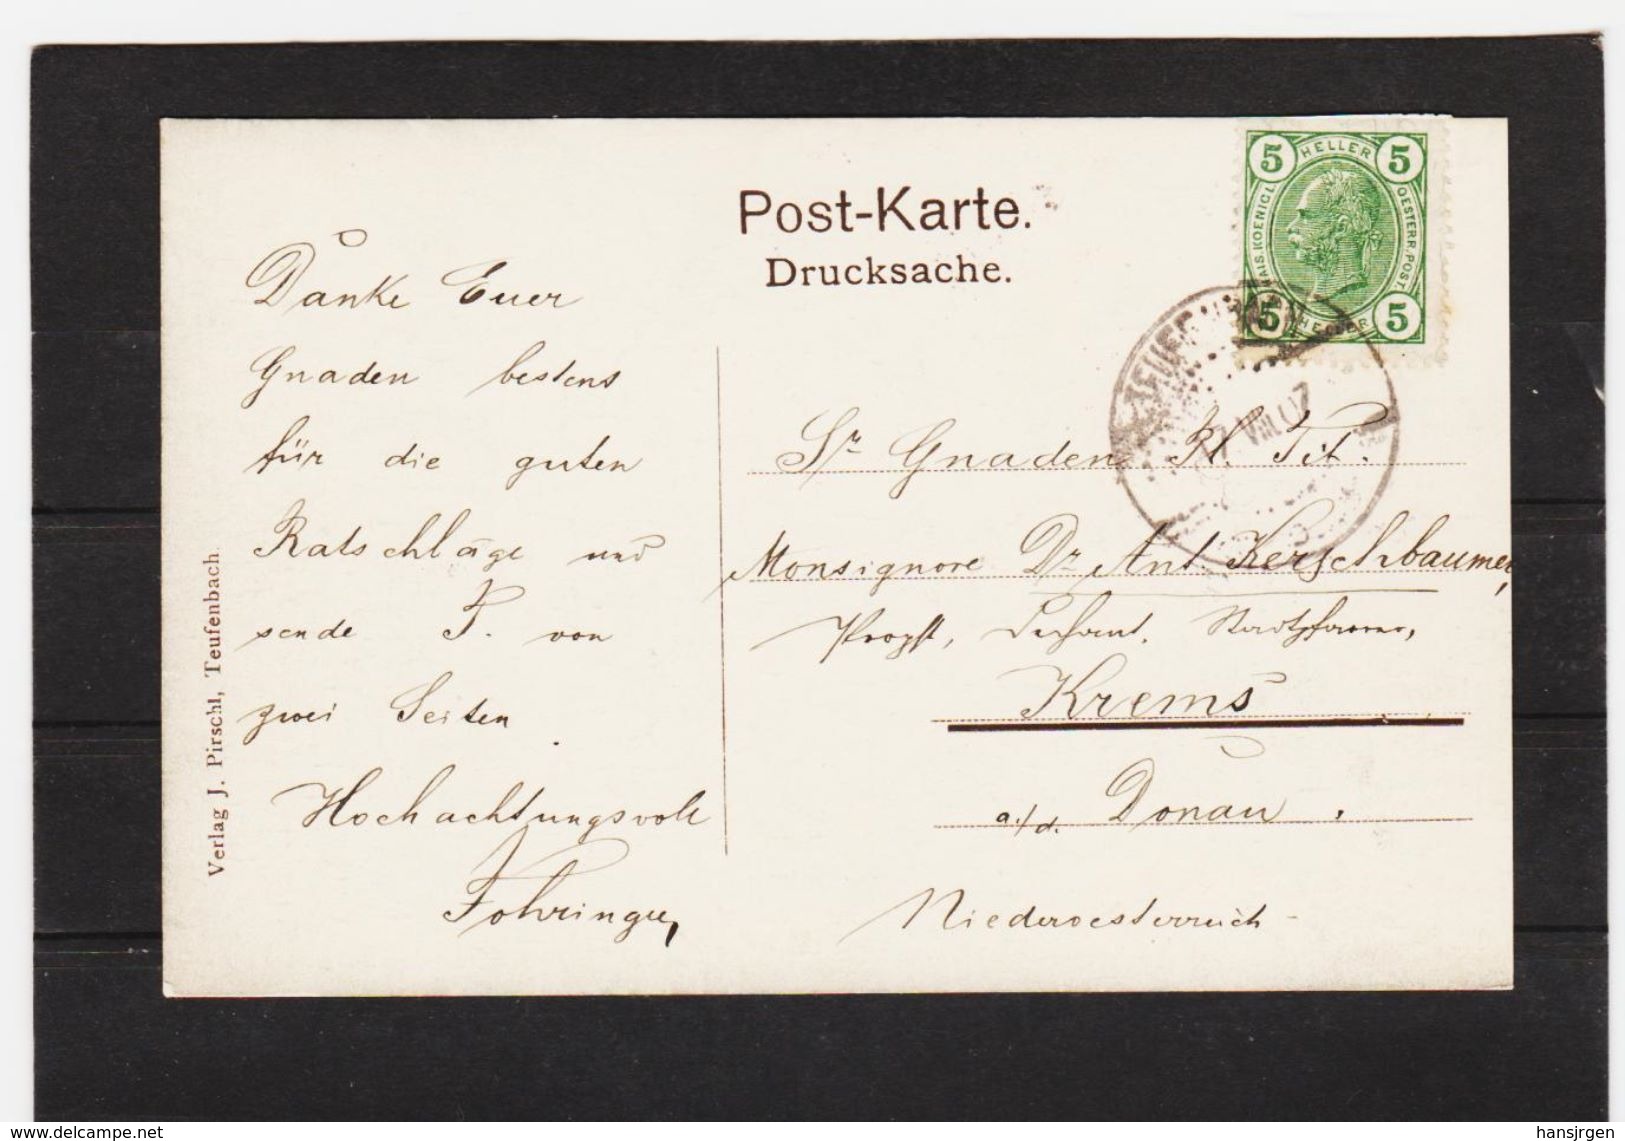 Post-Karte.
Drucksache.
5 HELLER 5
KAIS. KOENIGL.
OESTERR. POST.
5 HELLER 5
TEUFENBACH
VIII 07
Verlag J. Pirschl, Teufenbach.
Danke Euer
Gnaden bestens
für die guten
Ratschläge und
sende P. von
zwei Seiten.
Hochachtungsvoll
Sr Gnaden H. Tit.
Monsignore Dr. Ant. Kerschbaumer,
Propst, Dechant, Stadtpfarrer,
Krems
a./d. Donau.
Niederoesterreich
www.delcampe.net
hansjrgen